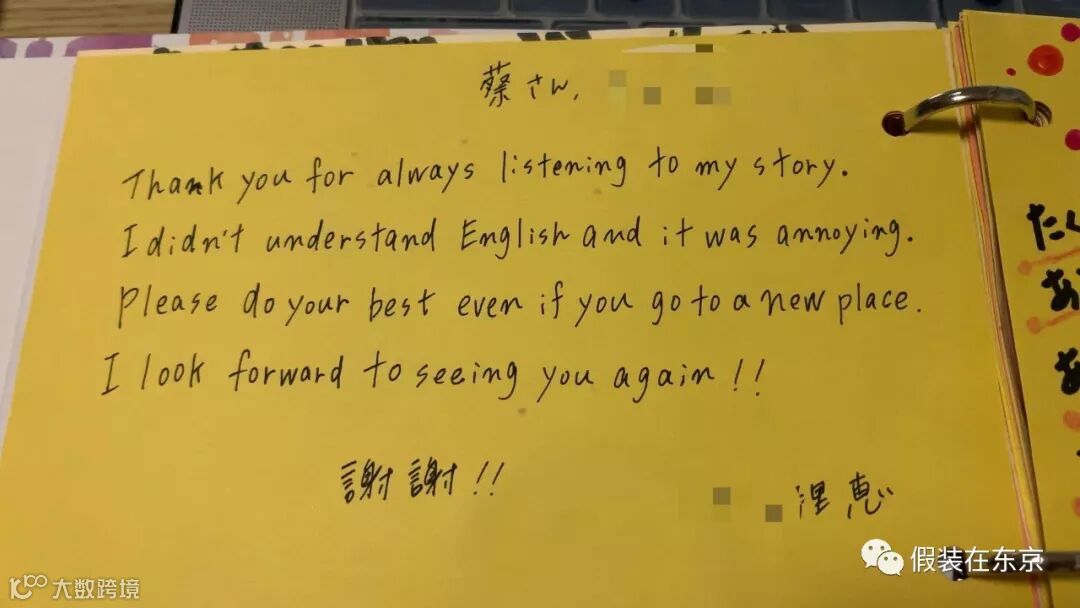 蔡さん,
Thank you for always listening to my story.
I didn't understand English and it was annoying.
Please do your best even if you go to a new place.
I look forward to seeing you again!!
謝謝!!
浬恵
たく
あ
あ
假装在东京
大数跨境